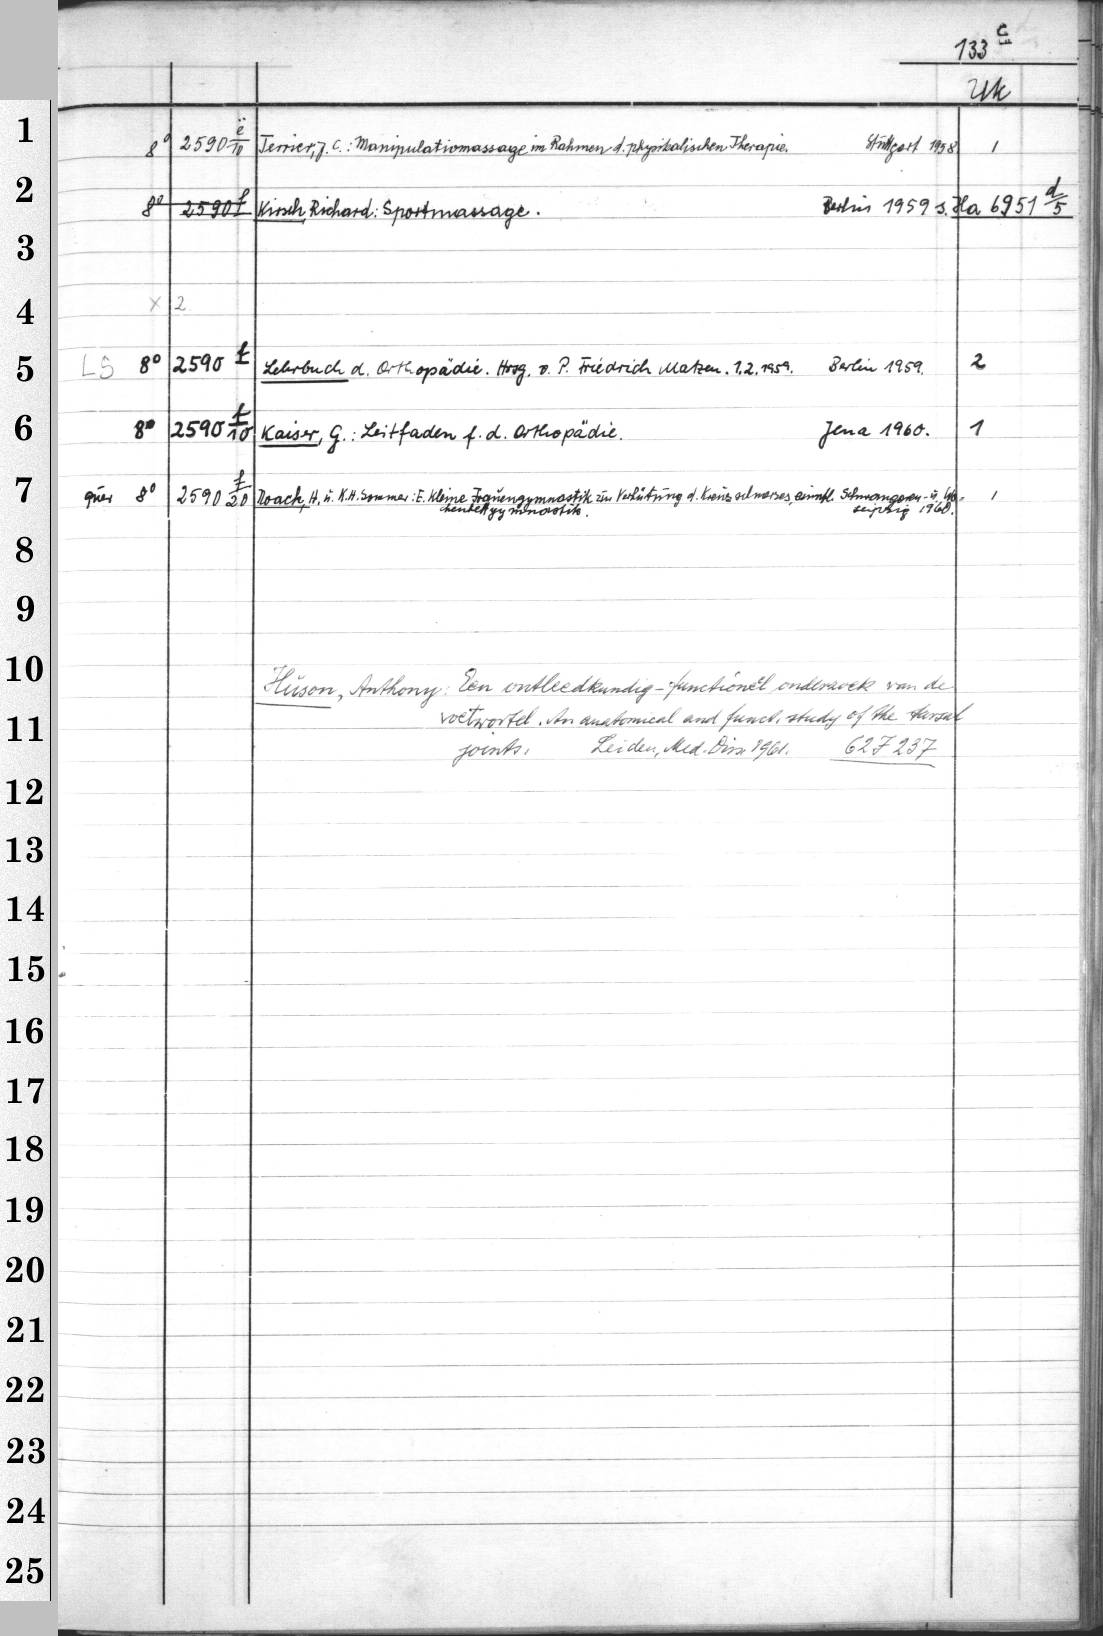 133 c
Uk
1
8° 2590 ë/10 Terrier, J. C.: Manipulativmassage im Rahmen d. physikalischen Therapie. Stuttgart 1958 1
2
8° 2590 f Kirsch, Richard: Sportmassage. Berlin 1959 s. Ha 6951 d/5
3
4
x 2
5
LS 8° 2590 f Lehrbuch d. Orthopädie. Hrsg. v. P. Friedrich Matzen. 1.2.1959. Berlin 1959. 2
6
8° 2590 f/10 Kaiser, G.: Leitfaden f. d. Orthopädie. Jena 1960. 1
7
quer 8° 2590 f/20 Noack, H. u. K.H. Sommer: E. kleine Frauengymnastik zur Verhütung d. Kreuzschmerzes, einschl. Schwangeren- u. Wo- 1
chenbettgymnastik. Leipzig 1960.
8
9
10
Huson, Anthony: Een ontleedkundig-functionëel onderzoek van de
11
voetwortel. An anatomical and funct. study of the tarsal
joints. Leiden, Med. Diss. 1961. 62 F 237
12
13
14
15
16
17
18
19
20
21
22
23
24
25